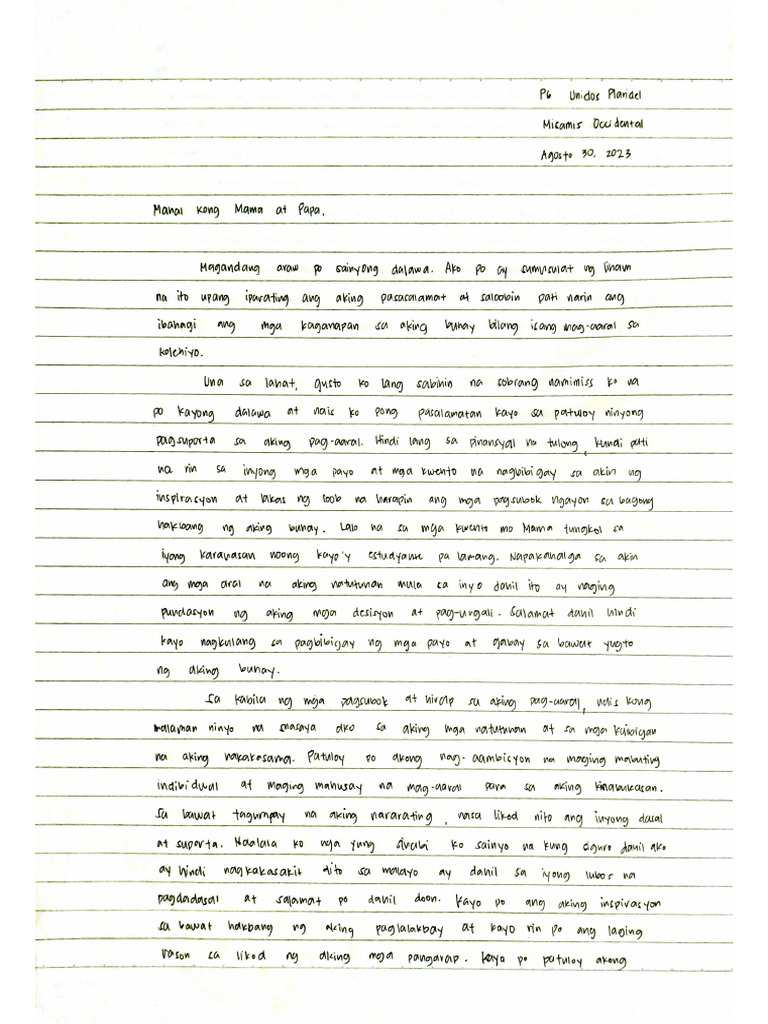 P6 Unidos Plaridel
Misamis Occidental
Agosto 30, 2023
Mahal kong Mama at Papa,
Magandang araw po sainyong dalawa. Ako po ay sumusulat ng liham
na ito upang iparating ang aking pasasalamat at saloobin pati narin ang
ibahagi ang mga kaganapan sa aking buhay bilang isang mag-aaral sa
kolehiyo.
Una sa lahat, gusto ko lang sabihin na sobrang namimiss ko na
po kayong dalawa at nais ko pong pasalamatan kayo sa patuloy ninyong
pagsuporta sa aking pag-aaral. Hindi lang sa pinansyal na tulong, kundi pati
na rin sa inyong mga payo at mga kwento na nagbibigay sa akin ng
inspirasyon at lakas ng loob na harapin ang mga pagsubok ngayon sa bagong
hakbang ng aking buhay. Lalo na sa mga kwento mo Mama tungkol sa
iyong karanasan noong kayo'y estudyante pa lamang. Napakahalga sa akin
ang mga aral na aking natutunan mula sa inyo dahil ito ay naging
pundasyon ng aking mga desisyon at pag-uugali. Salamat dahil hindi
kayo nagkulang sa pagbibigay ng mga payo at gabay sa bawat yugto
ng aking buhay.
Sa kabila ng mga pagsubok at hirap sa aking pag-aaral, nais kong
malaman ninyo na masaya ako sa aking mga natutunan at sa mga kaibigan
na aking nakakasama. Patuloy po akong nag-aambisyon na maging mabuting
indibidwal at maging mahusay na mag-aaral para sa aking kinabukasan.
Sa bawat tagumpay na aking nararating, nasa likod nito ang inyong dasal
at suporta. Naalala ko nga yung sinabi ko sainyo na kung siguro dahil ako
ay hindi nagkakasakit dito sa malayo ay dahil sa iyong lubos na
pagdadasal at salamat po dahil doon. Kayo po ang aking inspirasyon
sa bawat hakbang ng aking paglalakbay at kayo rin po ang laging
rason sa likod ng aking mga pangarap. Kaya po patuloy akong